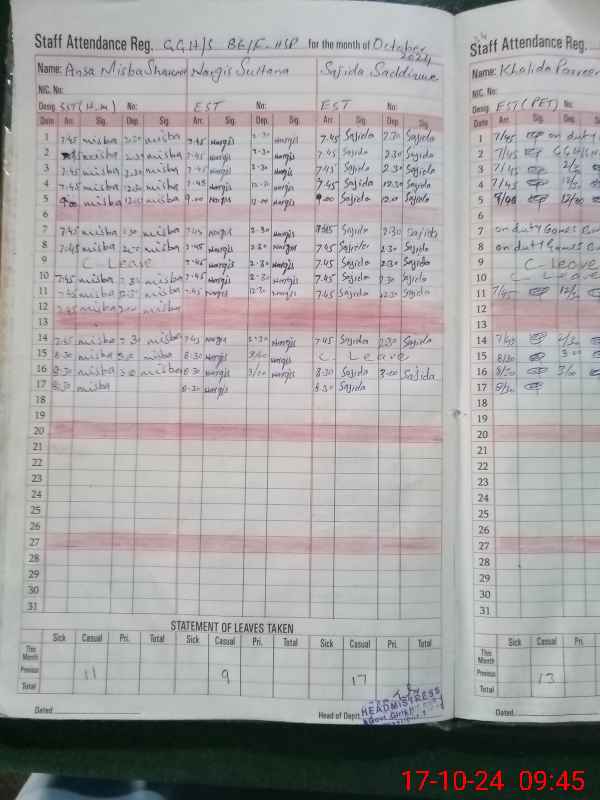 Staff Attendance Reg. GGH/S BE/F-HSP for the month of October 2024
Name: Ansa Misba Nargis Sultana Sajida Saddique
NIC. No:
Desig. SST (H.M) No: EST No: EST No:
Date Arr. Sig. Dep. Sig. Arr. Sig. Dep. Sig. Arr. Sig. Dep. Sig.
1 7.45 misba 2.30 misba 7.45 Nargis 2-30 Nargis 7.45 Sajida 2.30 Sajida
2 misba 2.30 misba 7.45 Nargis 2-30 Nargis 7.45 Sajida 2.30 Sajida
3 7.45 misba 2.30 misba 7.45 Nargis 2-30 Nargis 7.45 Sajida 2.30 Sajida
4 7.45 misba 12.30 misba 7.45 Nargis 12.30 Nargis 7.45 Sajida 12.30 Sajida
5 9.00 misba 12.00 misba 9.00 Nargis 12.00 Nargis 9.00 Sajida 12.00 Sajida
6
7 7.45 misba 2.30 misba 7.45 Nargis 2-30 Nargis 7.45 Sajida 2.30 Sajida
8 7.45 misba misba 7.45 Nargis 2.30 Nargis 7.45 Sajida 2.30 Sajida
9 C Leave 7.45 Nargis 2.30 Nargis 7.45 Sajida 2.30 Sajida
10 7.45 misba 2.30 misba 7.45 Nargis 2.30 Nargis 7.45 Sajida 2.30 Sajida
11 7.45 misba misba 7.45 Nargis 12.30 Nargis 7.45 Sajida 12.30 Sajida
12 misba misba
13
14 7.45 misba 2.30 misba 7.45 Nargis 2.30 Nargis 7.45 Sajida 2.30 Sajida
15 8.30 misba misba 8.30 Nargis 3/00 Nargis C. Leave
16 8.30 misba misba 8.30 Nargis 3/00 Nargis 8.30 Sajida 3.00 Sajida
17 8.30 misba 8.30 Nargis 8.30 Sajida
18
19
20
21
22
23
24
25
26
27
28
29
30
31
STATEMENT OF LEAVES TAKEN
Sick Casual Pri. Total Sick Casual Pri. Total Sick Casual Pri. Total
This Month
Previous 11 9 17
Total
Dated Head of Deptt.
HEADMISTRESS
24
Staff Attendance Reg.
Name: Khalida Parveen
NIC. No:
Desig. EST (PET) No:
Date Arr. Sig. Dep.
1 7/45 on duty
2 7/45
3 7/45 2/30
4 7/45 12/30
5 9/00 12/00
6
7 on duty Games
8 on duty Games
9 C Leave
10 C Leave
11 7/45 12/30
12
13
14 7/45 2/30
15 8/30 3 00
16 8/30 3/00
17 8/30
18
19
20
21
22
23
24
25
26
27
28
29
30
31
Sick Casual Pri.
This Month
Previous 13
Total
Dated
17-10-24 09:45